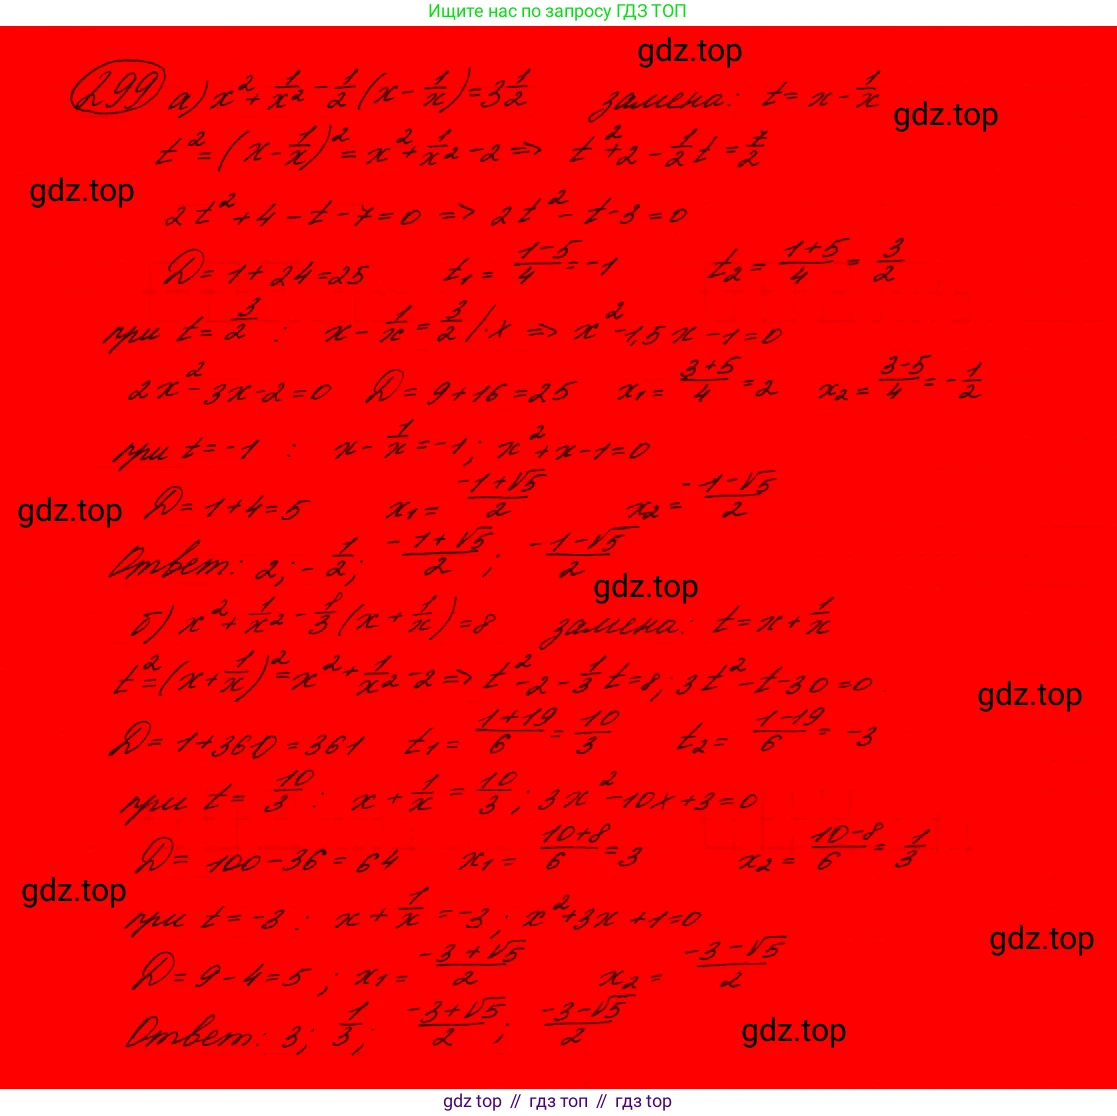 Ищите нас по запросу ГДЗ ТОП
gdz.top
299 а) x² + 1/x² - 1/2 (x - 1/x) = 3 1/2 замена: t = x - 1/x
gdz.top
t² = (x - 1/x)² = x² + 1/x² - 2 => t² + 2 - 1/2 t = 7/2
gdz.top
2t² + 4 - t - 7 = 0 => 2t² - t - 3 = 0
D = 1 + 24 = 25 t₁ = (1-5)/4 = -1 t₂ = (1+5)/4 = 3/2
при t = 3/2 : x - 1/x = 3/2 |·x => x² - 1,5x - 1 = 0
2x² - 3x - 2 = 0 D = 9 + 16 = 25 x₁ = (3+5)/4 = 2 x₂ = (3-5)/4 = -1/2
при t = -1 : x - 1/x = -1; x² + x - 1 = 0
gdz.top
D = 1 + 4 = 5 x₁ = (-1+√5)/2 x₂ = (-1-√5)/2
Ответ: 2; -1/2; (-1+√5)/2; (-1-√5)/2
gdz.top
б) x² + 1/x² - 1/3 (x + 1/x) = 8 замена: t = x + 1/x
t² = (x + 1/x)² = x² + 1/x² - 2 => t² - 2 - 1/3 t = 8; 3t² - t - 30 = 0
gdz.top
D = 1 + 360 = 361 t₁ = (1+19)/6 = 10/3 t₂ = (1-19)/6 = -3
при t = 10/3 : x + 1/x = 10/3; 3x² - 10x + 3 = 0
D = 100 - 36 = 64 x₁ = (10+8)/6 = 3 x₂ = (10-8)/6 = 1/3
gdz.top
при t = -3 : x + 1/x = -3; x² + 3x + 1 = 0
gdz.top
D = 9 - 4 = 5; x₁ = (-3+√5)/2 x₂ = (-3-√5)/2
Ответ: 3; 1/3; (-3+√5)/2; (-3-√5)/2
gdz.top
gdz top // гдз топ // гдз top